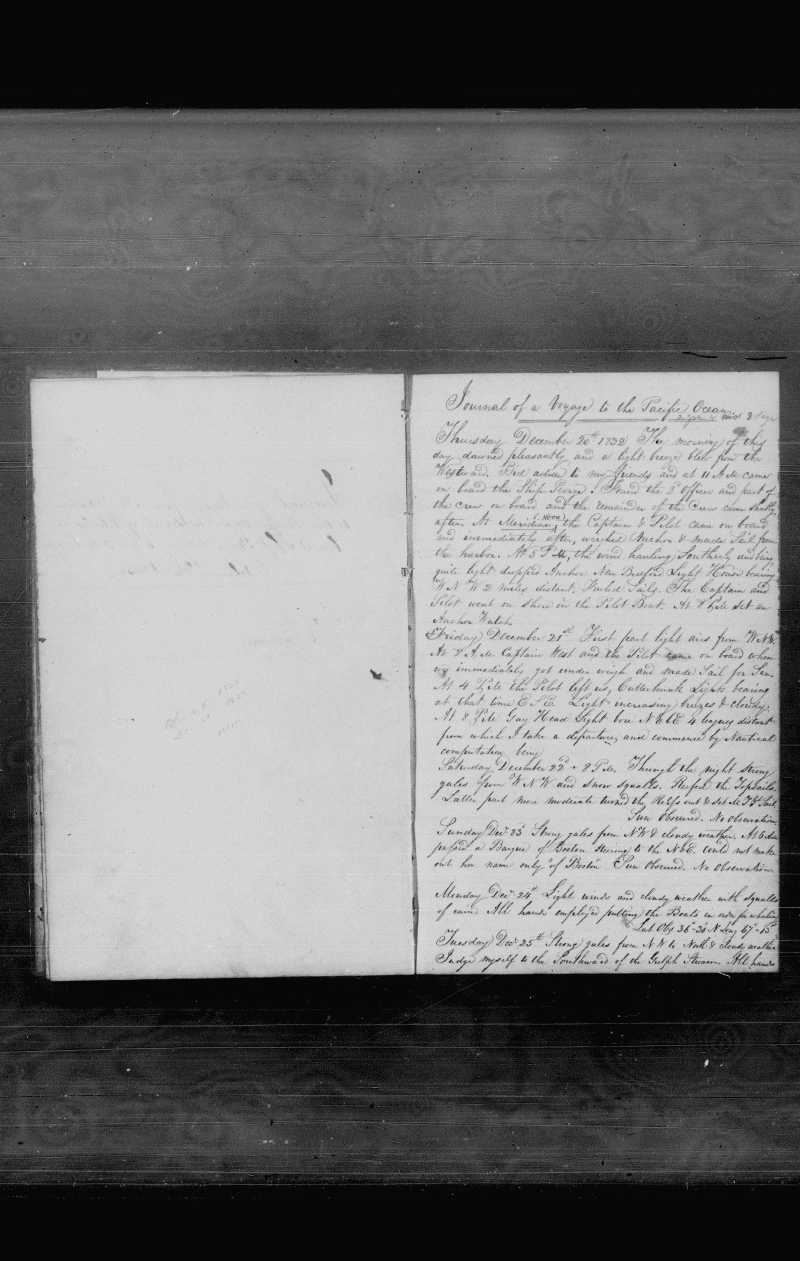 Journal of a Voyage to the Pacific Ocean
2 yrs 4 mos 3 days
Thursday December 20th 1832 The morning of this
day dawned pleasantly and a light breeze blew from the
Westward. Bid adieu to my friends and at 11 A.M. came
on board the Ship George. Found the 2d Officer and part of
the crew on board and the remainder of the Crew came shortly
after. At Meridian, (Noon) the Captain & Pilot came on board
and immediately after, weighed Anchor & made Sail from
the harbor. At 5 P.M. the wind hauling Southerly and being
quite light dropped Anchor New Bedford Light House bearing
W N W 2 miles distant. Furled Sails. The Captain and
Pilot went on Shore in the Pilot Boat. At 8 P.M. set an
Anchor Watch.
Friday December 21st First part light airs from W.N.W.
At 8 A.M. Captain West and the Pilot came on board when
we immediately got under weigh and made Sail for Sea.
At 4 P.M. the Pilot left us, Cutterhunk Lights bearing
at that time E S E. Light increasing breezes & cloudy.
At 8 P.M. Gay Head Light bore N E b E 4 leagues distant
from which I take a departure, and commence by Nautical
computation being
Saturday December 22d - 8 P.M. Through the night strong
gales from W N W and snow squalls. Reefed the Topsails.
Latter part more moderate turned the Reefs out & set M.T.G. Sail
Sun Obscured. No Observation.
Sunday Decr 23d Strong gales from N.W. & cloudy weather. At 6 A.M.
passed a Barque of Boston steering to the N & E. could not make
out her name only "of Boston" Sun Obscured. No Observation.
Monday Decr 24th Light winds and cloudy weather with squalls
of rain. All hands employed putting the Boats in order for whaling
Lat Obs 36°-30' N Long 67°-15'
Tuesday Decr 25th Strong gales from N W to North & cloudy weather
Judge myself to the Southward of the Gulph Stream. All hands